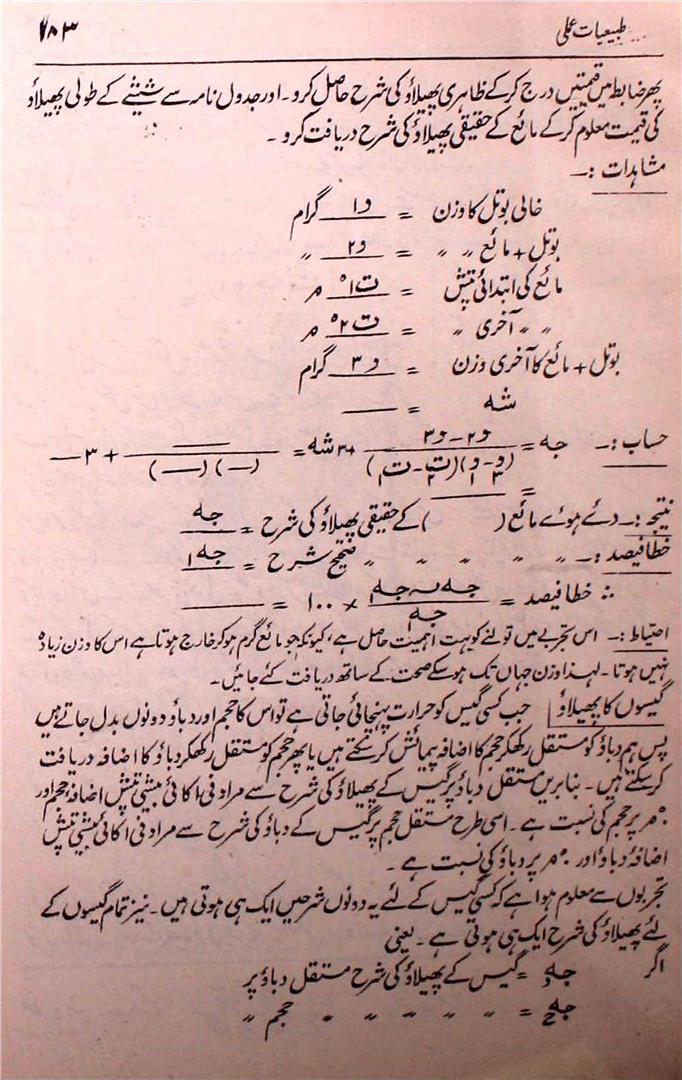 طبیعیات عملی ۱۸۳
پھر ضابطہ میں قیمتیں درج کرکے ظاہری پھیلاؤ کی شرح حاصل کرو۔ اور جدول نامہ سے شیشے کے طولی پھیلاؤ
کی قیمت معلوم کرکے مائع کے حقیقی پھیلاؤ کی شرح دریافت کرو۔
مشاہدات :۔
خالی بوتل کا وزن = و۱ گرام
بوتل + مائع 〃 〃 = و۲ 〃
مائع کی ابتدائی تپش = ت۱° مر
〃 〃 آخری 〃 = ت۲° مر
بوتل + مائع کا آخری وزن = و۳ گرام
شہ = ——
حساب :۔ جہ = و۲ - و۳ / (و۳ - و۱)(ت۲ - ت۱) + ۳ شہ = —— / (—)(—) + ۳ —
= ——
نتیجہ :۔ دئے ہوئے مائع ( ) کے حقیقی پھیلاؤ کی شرح = جہ
خطا فیصد :۔ 〃 〃 〃 〃 〃 صحیح شرح = جہ۱
∴ خطا فیصد = جہ ~ جہ۱ / جہ۱ × ۱۰۰ = ——
احتیاط :۔ اس تجربے میں تولنے کو بہت اہمیت حاصل ہے، کیونکہ جو مائع گرم ہوکر خارج ہوتا ہے اس کا وزن زیادہ
نہیں ہوتا۔ لہذا وزن جہاں تک ہوسکے صحت کے ساتھ دریافت کئے جائیں۔
گیسوں کا پھیلاؤ | جب کسی گیس کو حرارت پہنچائی جاتی ہے تو اس کا حجم اور دباؤ دونوں بدل جاتے ہیں
پس ہم دباؤ کو مستقل رکھکر حجم کا اضافہ پیمائش کرسکتے ہیں یا پھر حجم کو مستقل رکھکر دباؤ کا اضافہ دریافت
کرسکتے ہیں۔ بنابریں مستقل دباؤ پر گیس کے پھیلاؤ کی شرح سے مراد فی اکائی بیشی تپش اضافۂ حجم اور
۰° مر پر حجم کی نسبت ہے۔ اسی طرح مستقل حجم پر گیس کے دباؤ کی شرح سے مراد فی اکائی بیشی تپش
اضافۂ دباؤ اور ۰° مر پر دباؤ کی نسبت ہے۔
تجربوں سے معلوم ہوا ہے کہ کسی گیس کے لئے یہ دونوں شرحیں ایک ہی ہوتی ہیں۔ نیز تمام گیسوں کے
لئے پھیلاؤ کی شرح ایک ہی ہوتی ہے۔ یعنی
اگر جہد = گیس کے پھیلاؤ کی شرح مستقل دباؤ پر
جہح = 〃 〃 〃 〃 〃 حجم 〃